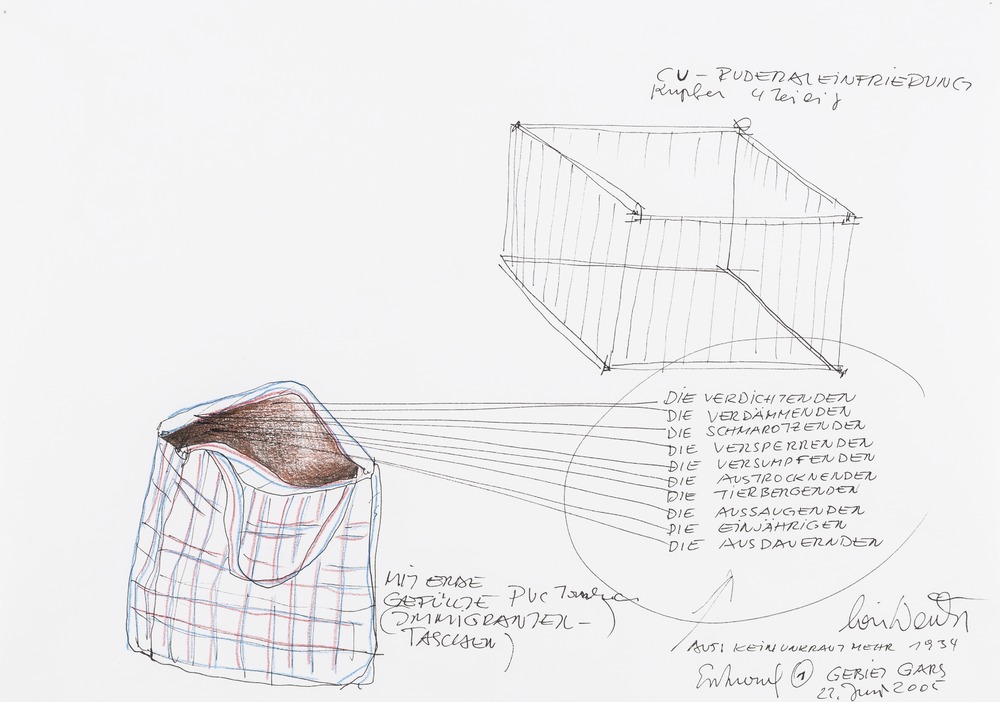 CU – RUDERALEINFRIEDUNG
Kupfer 4 teilig
DIE VERDICHTENDEN
DIE VERDÄMMENDEN
DIE SCHMAROTZENDEN
DIE VERSPERRENDEN
DIE VERSUMPFENDEN
DIE AUSTROCKNENDEN
DIE TIERBERGENDEN
DIE AUSSAUGENDEN
DIE EINJÄHRIGEN
DIE AUSDAUERNDEN
MIT ERDE
GEFÜLLTE PVC Taschen
(IMMIGRANTEN–
TASCHEN)
Lois Weinb
AUS: KEIN UNKRAUT MEHR 1934
Entwurf 1 GEBIET GARS
22. Juni 2005